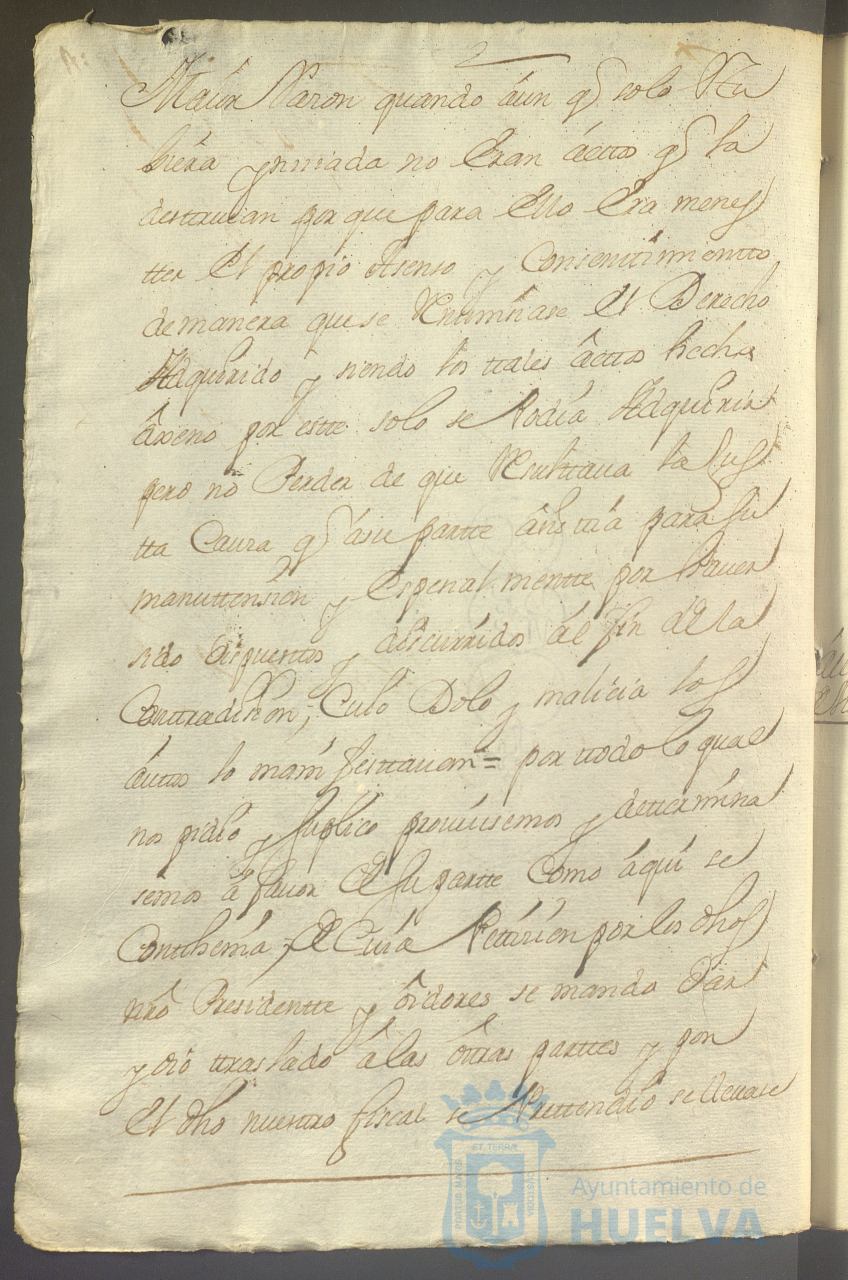 Maior Varon quando áun q solo Hu
biera ynmiada no Eran áctos q la
destruian por que para Ello Era menes
tter El propio Asenso y Consenttimientto
demanera que se Renumciase El Derecho
Adquirido y siendo los ttales âcttos hechos
âxeno por estte solo se Podia Adquirir
pero no Perder de que Resulttaua la Jus
tta Caussa q âsu partte âsisttía para su
manuttension y Especial mentte por hauer
sido dispuesttos y discurridos ál fin de la
Conttradission, Cuio Dolo y malicia los
áuttos lo manifesttauan = por ttodo lo qual
nos pidió y suplicó proueiesemos y detterminá
semos á fauor de su partte Como áqui se
Conthenia, de Cuia Petticion por los dhos
nro Presidentte y ôidores se mando Dar
y dió ttraslado á las óttras parttes y por
El dho nuestro fiscal se Prettendió se lleuase
ET TERRAE
PORTUS MARIS
CUSTODIA
Ayuntamiento de
HUELVA